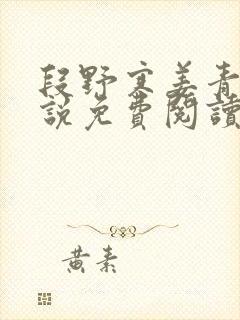 段野寒姜青
說免費閱讀
黃素